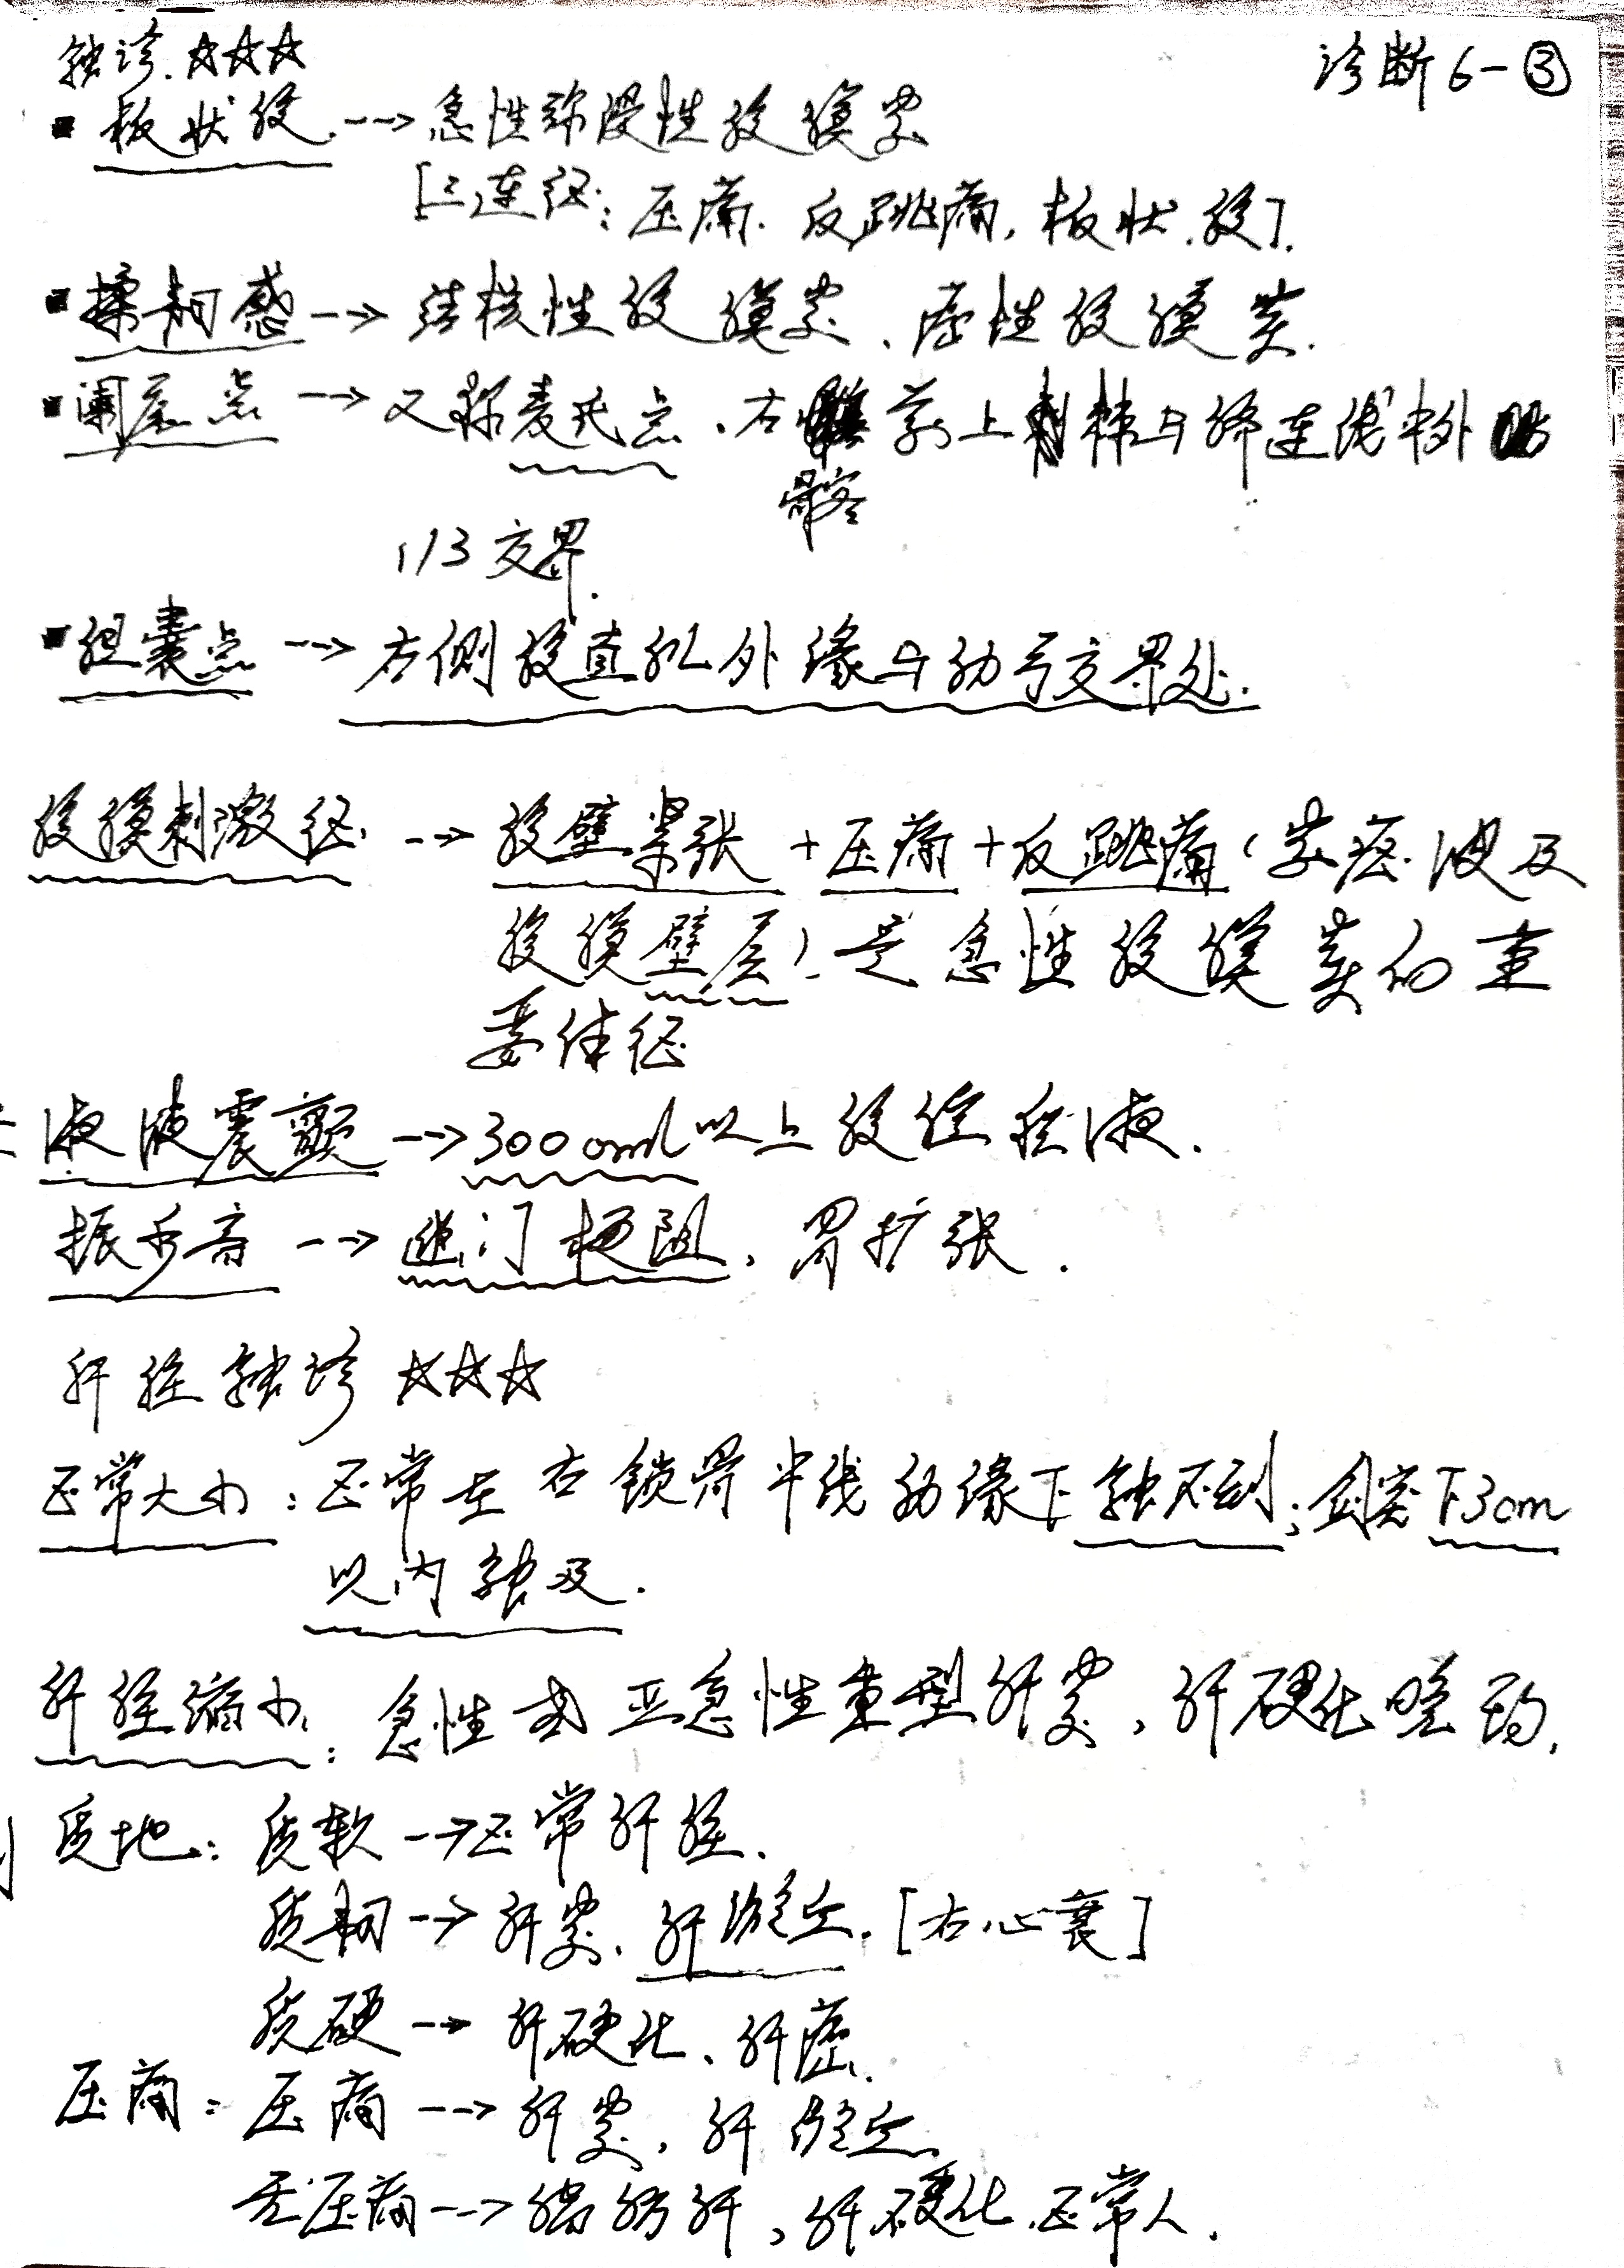 触诊.☆☆☆
诊断6-③
▪板状腹-->急性弥漫性腹膜炎
[三连征:压痛.反跳痛,板状.腹].
▪揉韧感-->结核性腹膜炎、癌性腹膜炎.
▪阑尾点-->又称麦氏点.右髂前上棘与脐连线中外
1/3交界.
▪胆囊点-->右侧腹直肌外缘与肋弓交界处.
腹膜刺激征-->腹壁紧张+压痛+反跳痛(炎症.波及
腹膜壁层).是急性腹膜炎的重
要体征
液波震颤-->3000ml以上腹腔积液.
振水音-->幽门梗阻,胃扩张.
肝脏触诊☆☆☆
正常大小:正常在右锁骨中线肋缘下触不到;剑突下3cm
以内触及.
肝脏缩小:急性或亚急性重型肝炎,肝硬化晚期,
质地:质软-->正常肝脏.
质韧-->肝炎、肝淤血.[右心衰]
质硬-->肝硬化、肝癌.
压痛:压痛-->肝炎,肝淤血.
无压痛-->脂肪肝,肝硬化.正常人.